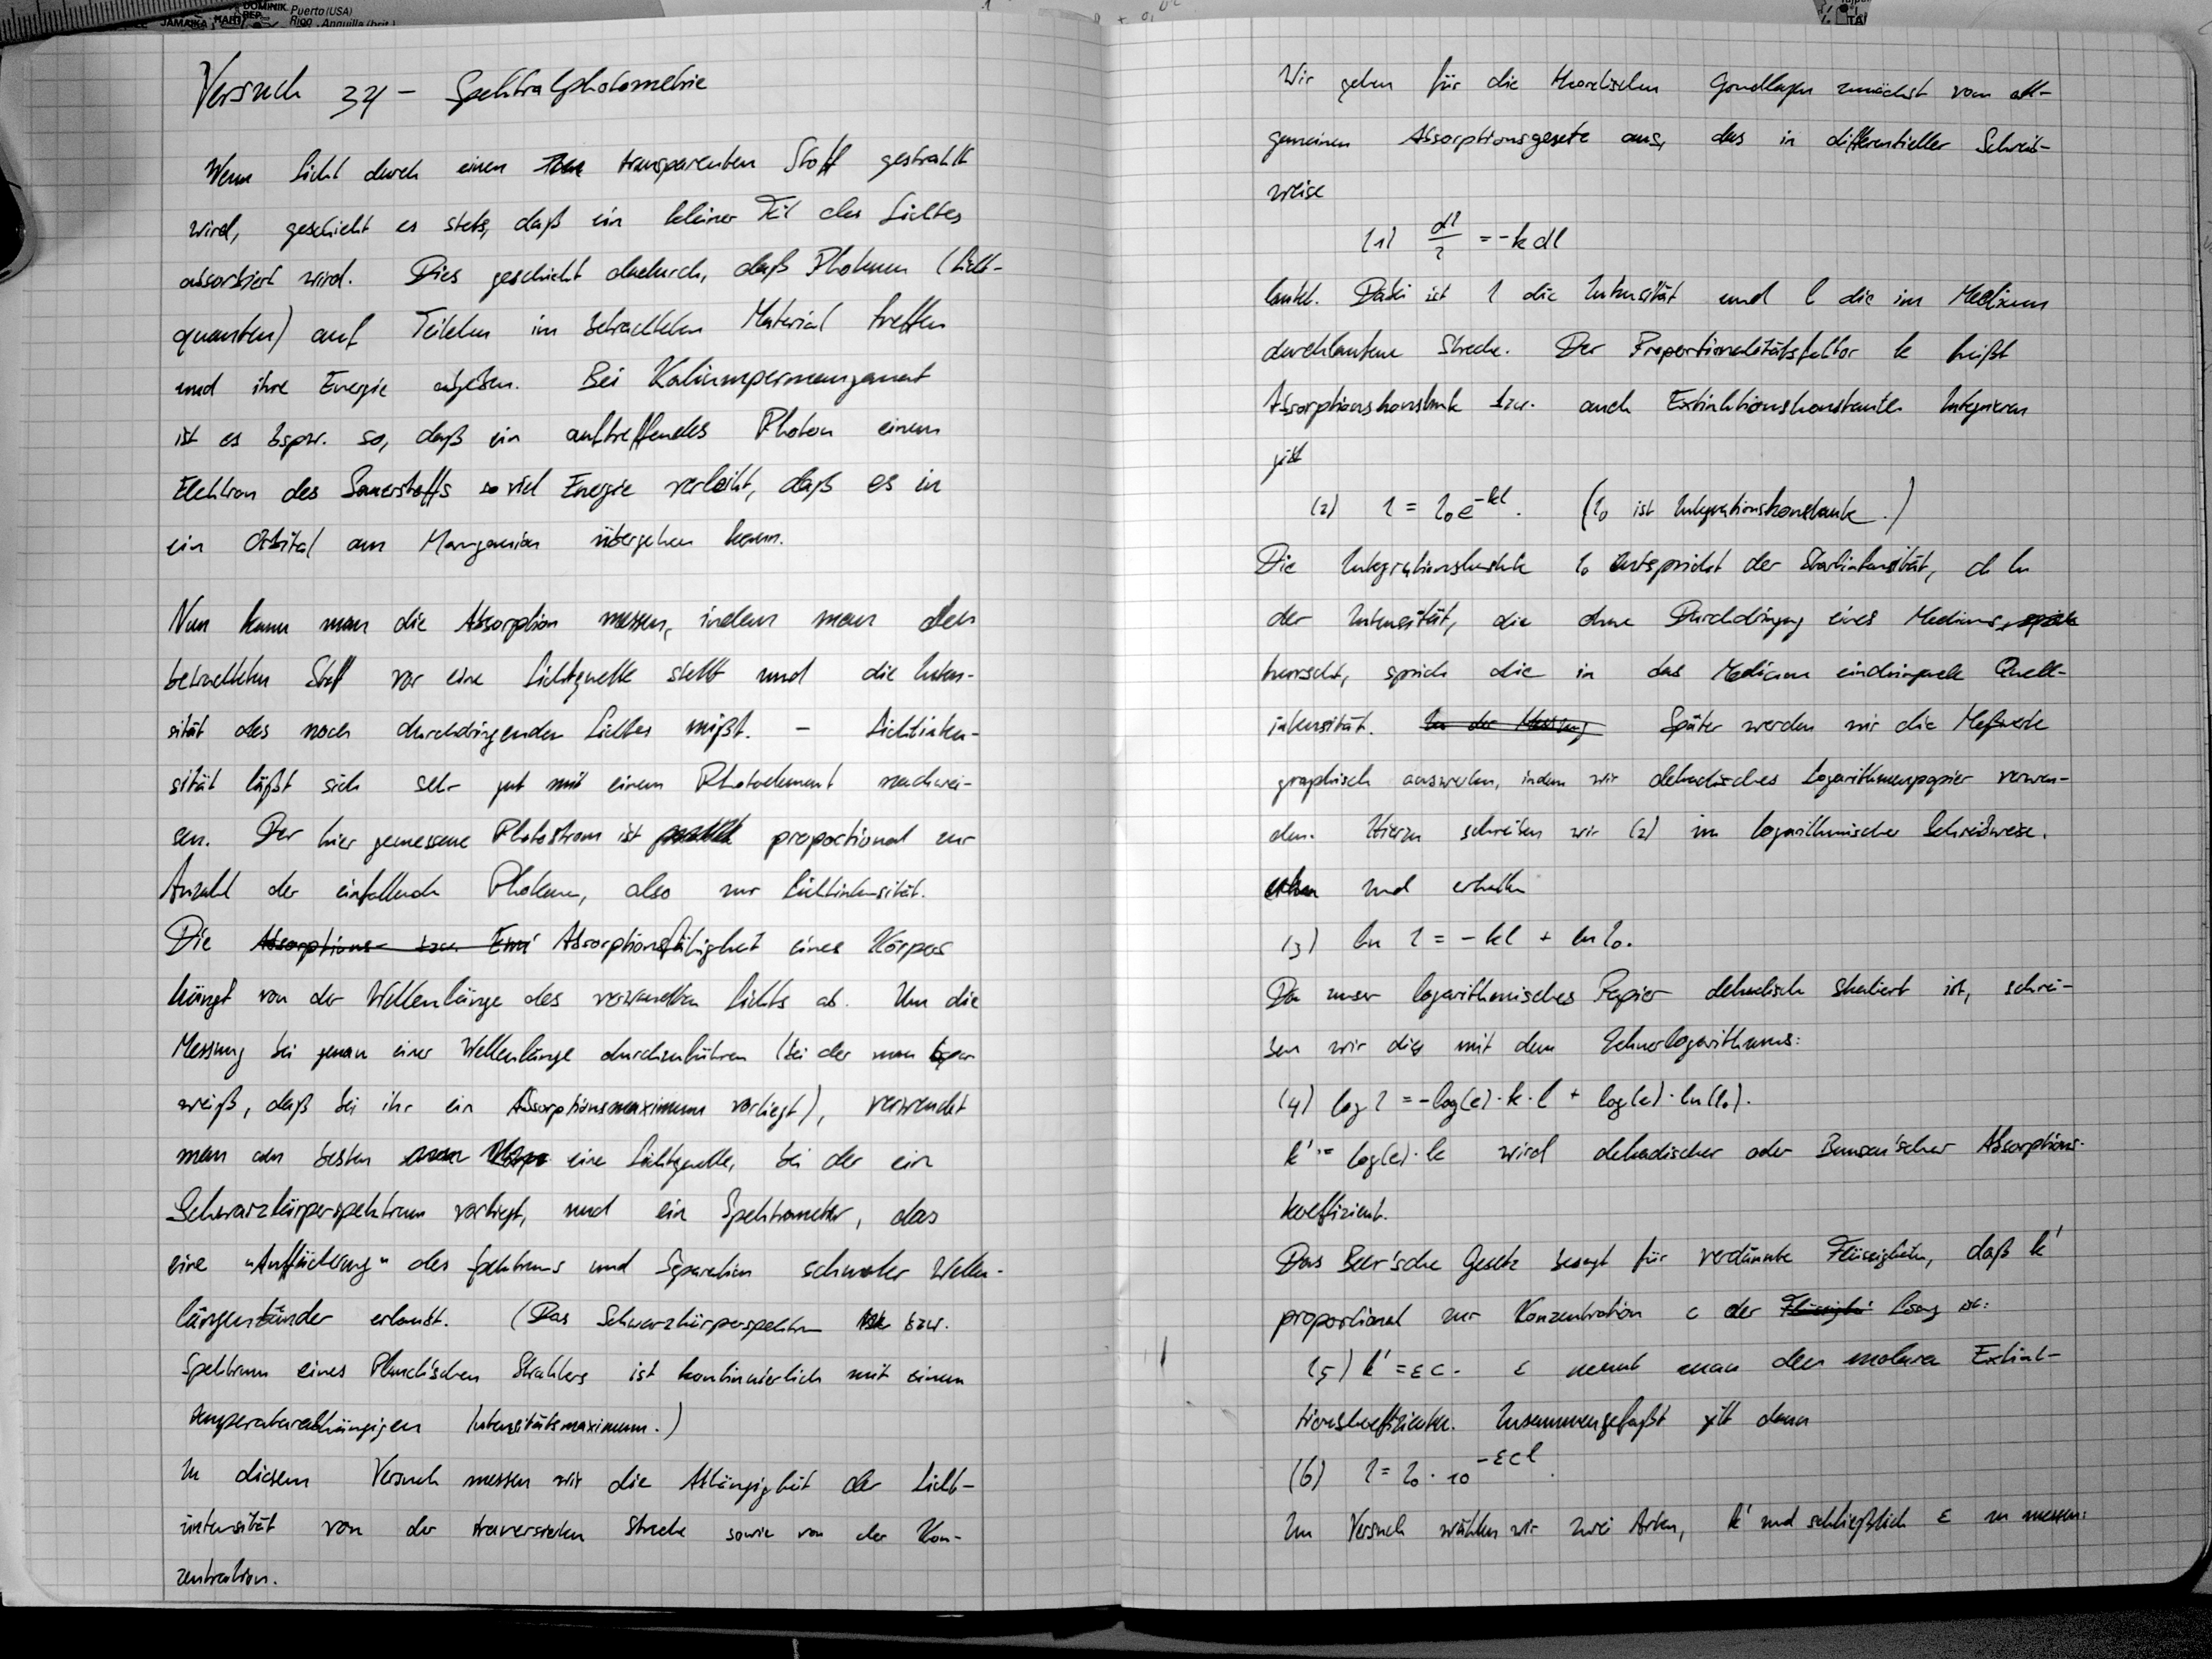 DOMINIK.
REP.
Puerto (USA)
JAMAIKA HAITI
Rico Anguilla (brit.)
TA
Versuch 34 – Spektralphotometrie
Wenn Licht durch einen transparenten Stoff gestrahlt
wird, geschieht es stets, daß ein kleiner Teil des Lichtes
absorbiert wird. Dies geschieht dadurch, daß Photonen (Licht-
quanten) auf Teilchen im betrachteten Material treffen
und ihre Energie abgeben. Bei Kaliumpermanganat
ist es bspw. so, daß ein auftreffendes Photon einem
Elektron des Sauerstoffs so viel Energie verleiht, daß es in
ein Orbital am Manganion übergehen kann.
Nun kann man die Absorption messen, indem man den
betrachteten Stoff vor eine Lichtquelle stellt und die Inten-
sität des noch durchdringenden Lichtes mißt. – Lichtinten-
sität läßt sich sehr gut mit einem Photoelement nachwei-
sen. Der hier gemessene Photostrom ist proportional zur
Anzahl der einfallenden Photonen, also zur Lichtintensität.
Die Absorptions- bzw. Emi Absorptionsfähigkeit eines Körpers
hängt von der Wellenlänge des verwandten Lichts ab. Um die
Messung bei genau einer Wellenlänge durchzuführen (bei der man
weiß, daß bei ihr ein Absorptionsmaximum vorliegt), verwendet
man am besten eine Lichtquelle, bei der ein
Schwarzkörperspektrum vorliegt, und ein Spektrometer, das
eine "Auffächerung" des Spektrums und Separation schmaler Wellen-
längenbänder erlaubt. (Das Schwarzkörperspektrum bzw.
Spektrum eines Planck'schen Strahlers ist kontinuierlich mit einem
temperaturabhängigen Intensitätsmaximum.)
In diesem Versuch messen wir die Abhängigkeit der Licht-
intensität von der traversierten Strecke sowie von der Kon-
zentration.
Wir gehen für die theoretischen Grundlagen zunächst vom all-
gemeinen Absorptionsgesetz aus, das in differentieller Schreib-
weise
(1) dI/I = -k dl
lautet. Dabei ist I die Intensität und l die im Medium
durchlaufene Strecke. Der Proportionalitätsfaktor k heißt
Absorptionskonstante bzw. auch Extinktionskonstante. Integrieren
gibt
(2) I = I₀e^-kl. (I₀ ist Integrationskonstante.)
Die Integrationskonstante I₀ entspricht der Startintensität, d. h.
der Intensität, die ohne Durchdringung eines Mediums
herrscht, sprich die in das Medium eindringende Quell-
intensität. In der Messung Später werden wir die Meßwerte
graphisch auswerten, indem wir dekadisches Logarithmenpapier verwen-
den. Hierzu schreiben wir (2) in logarithmischer Schreibweise.
und erhalten
(3) ln I = -kl + ln I₀.
Da unser logarithmisches Papier dekadisch skaliert ist, schrei-
ben wir dies mit dem Zehnerlogarithmus:
(4) log I = -log(e)·k·l + log(e)·ln(I₀).
k' := log(e)·k wird dekadischer oder Bunsen'scher Absorptions-
koeffizient.
Das Beer'sche Gesetz besagt für verdünnte Flüssigkeiten, daß k'
proportional zur Konzentration c der Lösung ist:
(5) k' = εc. ε nennt man den molaren Extink-
tionskoeffizienten. Zusammengefaßt gilt dann
(6) I = I₀·10^-εcl.
Im Versuch wählen wir zwei Arten, k' und schließlich ε zu messen: